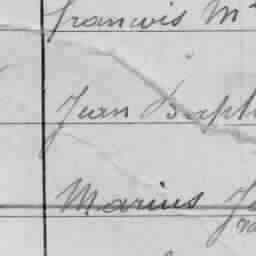 francois M
Jean Bapt
Marius J